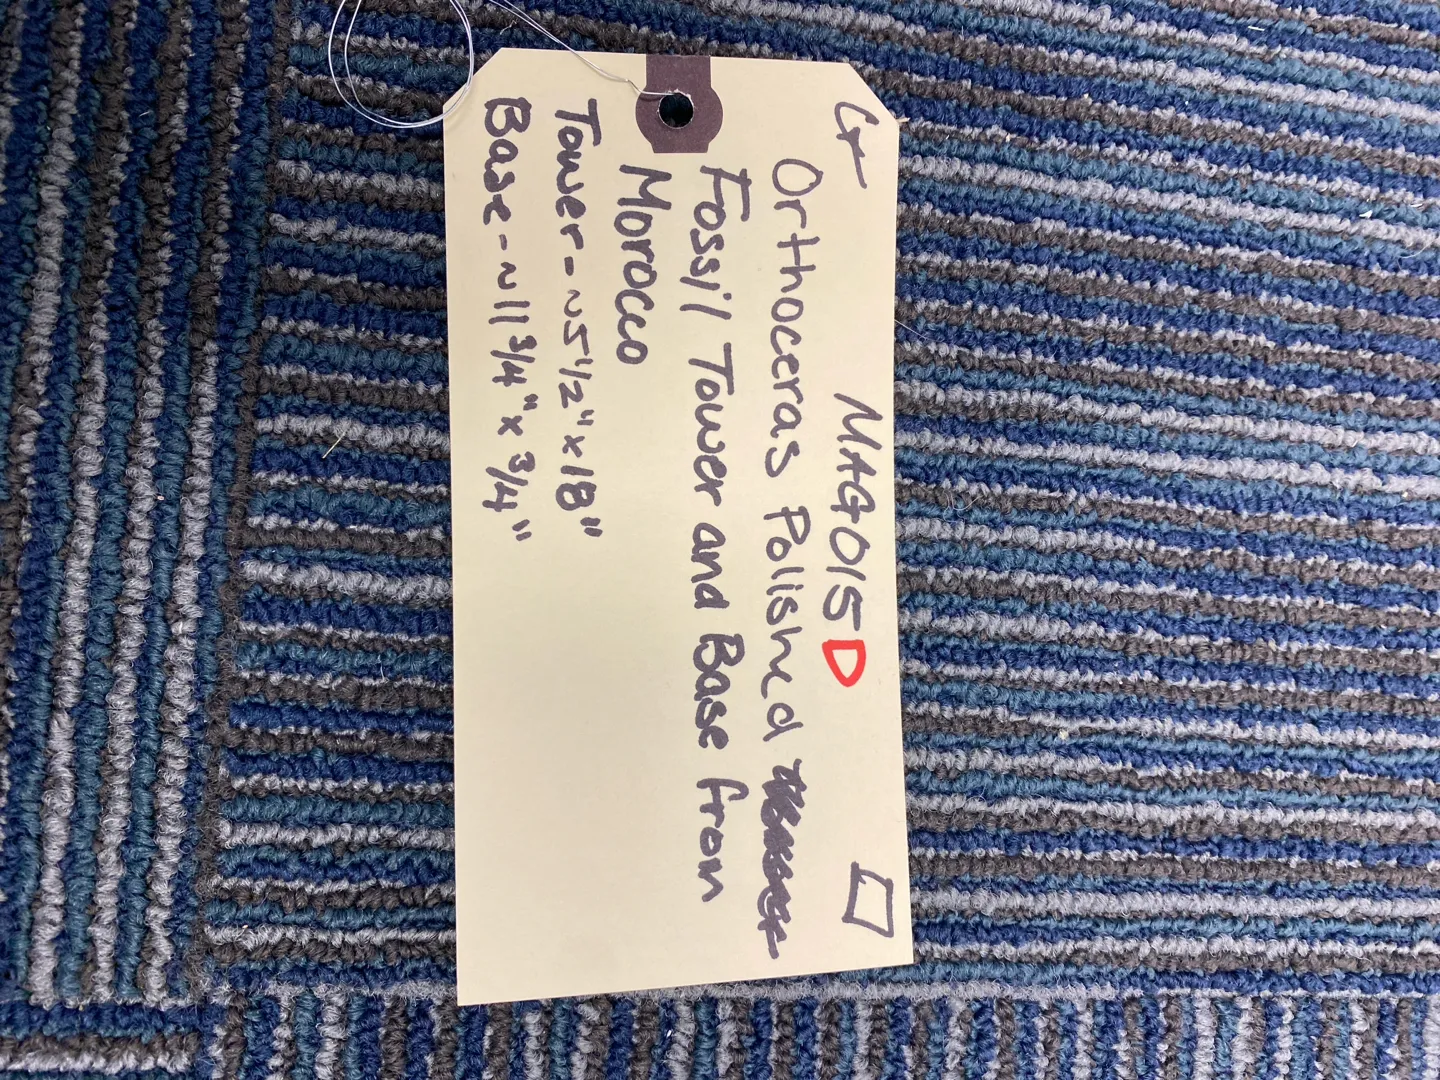 G+ MAG015D
Orthoceras Polished
Fossil Tower and Base from
Morocco
Tower - ~5 1/2" x 18"
Base - ~11 3/4" x 3/4"